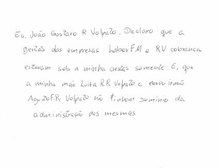 Eu, João Gustavo R Volpato. Declaro que a
gestão das empresas Labor FM e RV cobranca
estavam sob a minha gestão somente E. que
a minha mãe R R Volpato e meu irmão
R Volpato não tinham dominio da
administração das mesmas